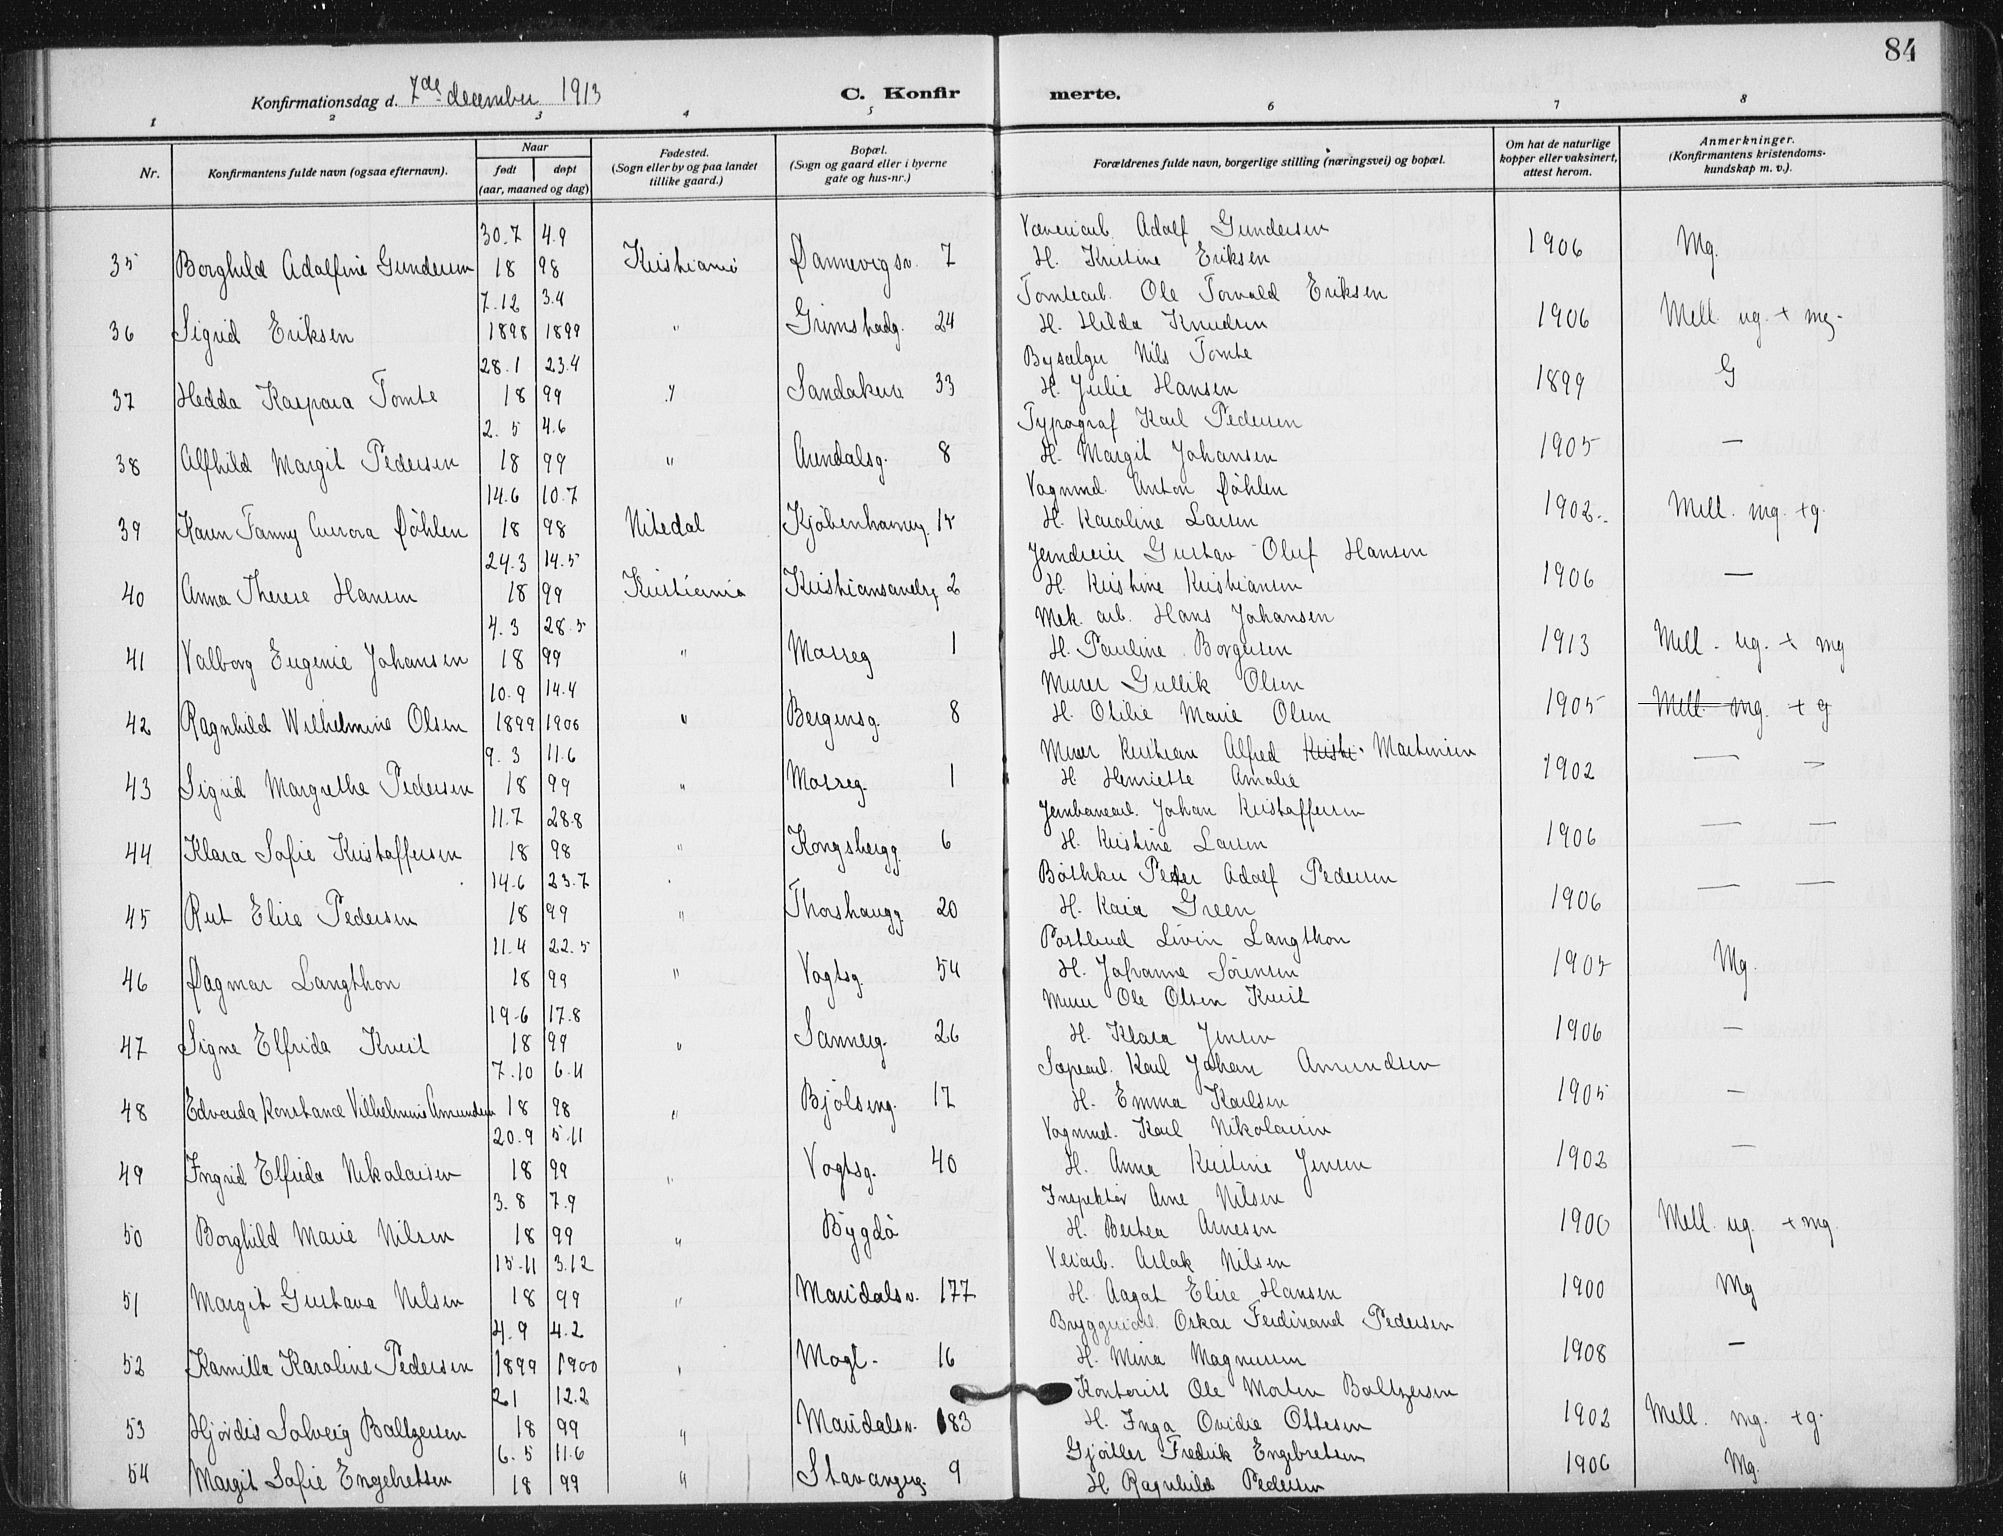 84
Konfirmationsdag d. 7de december 1913 C. Konfir merte.
1 2 3 4 5 6 7 8
Nr. Konfirmantens fulde navn (ogsaa efternavn). Naar født døpt (aar, maaned og dag) Fødested. (Sogn eller by og paa landet tillike gaard.) Bopæl. (Sogn og gaard eller i byerne gate og hus-nr.) Forældrenes fulde navn, borgerlige stilling (næringsvei) og bopæl. Om hat de naturlige kopper eller vaksinert, attest herom. Anmerkninger. (Konfirmantens kristendoms-kundskap m. v.).
30.7 4.9 Væveriarb. Adolf Gundersen
35 Borghild Adolfine Gundersen 18 98 Kristiania Dannevigsv. 7 H. Kristine Eriksen 1906 Mg.
7.12 3.4 Tomtearb. Ole Torvald Eriksen
36 Sigrid Eriksen 1898 1899 " Grimstadg. 24 H. Hilda Knudsen 1906 Mell. ug. + mg.
28.1 23.4 Bysælger Nils Tomte
37 Hedda Kaspara Tomte 18 99 " Sandakerv. 33 H. Julie Hansen 1899 G
2.5 4.6 Typograf Karl Pedersen
38 Alfhild Margit Pedersen 18 99 " Arendalsg. 8 H. Margit Johansen 1905 —
14.6 10.7 Vognmd. Anton Døhlen
39 Karen Fanny Aurora Døhlen 18 98 Nitedal Kjøbenhavng. 15 H. Karoline Larsen 1902 Mell. mg. + g.
24.3 14.5 Jerndreier Gustav Oluf Hansen
40 Anna Therese Hansen 18 99 Kristiania Kristiansandsg. 2 H. Kristine Kristiansen 1906 —
4.3 28.5 Mek. arb. Hans Johansen
41 Valborg Eugenie Johansen 18 99 " Mosseg. 1 H. Pauline Borgersen 1913 Mell. ug. + mg
10.9 14.4 Murer Gullik Olsen
42 Ragnhild Wilhelmine Olsen 1899 1900 " Bergensg. 8 H. Otilie Marie Olsen 1905 Mell. mg. + g
9.3 11.6 Murer Kristian Alfred Martinsen
43 Sigrid Margrethe Pedersen 18 99 " Mosseg. 1 H. Henriette Amalie 1902 — —
11.7 28.8 Jernbanearb. Johan Kristoffersen
44 Klara Sofie Kristoffersen 18 98 " Kongsbergg. 6 H. Kristine Larsen 1906 — —
14.6 23.7 Bøtkker Peder Adolf Pedersen
45 Rut Elise Pedersen 18 99 " Thorshaugg. 20 H. Kaia Green 1906 — —
11.4 22.5 Postbud Livin Langthon
46 Dagmar Langthon 18 99 " Vogtsg. 54 H. Johanne Sørensen 1905 Mg.
19.6 17.8 Murer Ole Olsen Kveil
47 Signe Elfrida Kveil 18 99 " Sannerg. 26 H. Klara Jensen 1906 —
7.10 6.11 Sæpearb. Karl Johan Amundsen
48 Edvarda Konstance Vilhelmine Amundsen 18 98 " Bjølseng. 17 H. Emma Karlsen 1905 —
20.9 5.11 Vognmd. Karl Nikolaisen
49 Ingrid Elfrida Nikolaisen 18 99 " Vogtsg. 40 H. Anna Kristine Jensen 1902 —
3.8 7.9 Inspektør Arne Nilsen
50 Borghild Marie Nilsen 18 99 " Bygdø H. Berthea Arnesen 1900 Mell. ug. + mg.
15.11 3.12 Veiarb. Aslak Nilsen
51 Margit Gustava Nilsen 18 99 " Maridalsv. 177 H. Aagot Elise Hansen 1900 Mg
4.9 4.2 Bryggeriarb. Oskar Ferdinand Pedersen
52 Kamilla Karoline Pedersen 1899 1900 " 16 H. Mina Magnussen 1908 —
2.1 12.2 Kontorist Ole Morten Baltzersen
53 Hjørdis Solveig Baltzersen 18 99 " Maridalsv. 183 H. Inga Ovidie Ottesen 1902 Mell. mg. + g.
6.5 11.6 Gjørtler Fredrik Engebretsen
54 Margit Sofie Engebretsen 18 99 " Stavangerg. 9 H. Ragnhild Pedersen 1906 Mg.